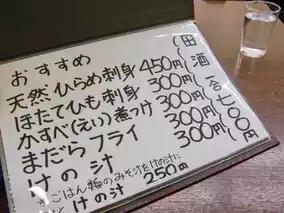 おすすめ
天然ひらめ刺身 450円
ほたてひも刺身 300円
かすべ(えい)煮つけ 300円
まだらフライ 300円
けの汁 300円
ごはん 麺のみそ汁をけの汁に
けの汁 250円
田酒 一合 七〇〇円